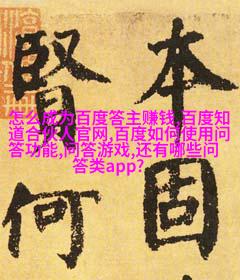 賢
何
本
固
怎么成为百度答主赚钱,百度知
道合伙人官网,百度如何使用问
答功能,问答游戏,还有哪些问
答类app?